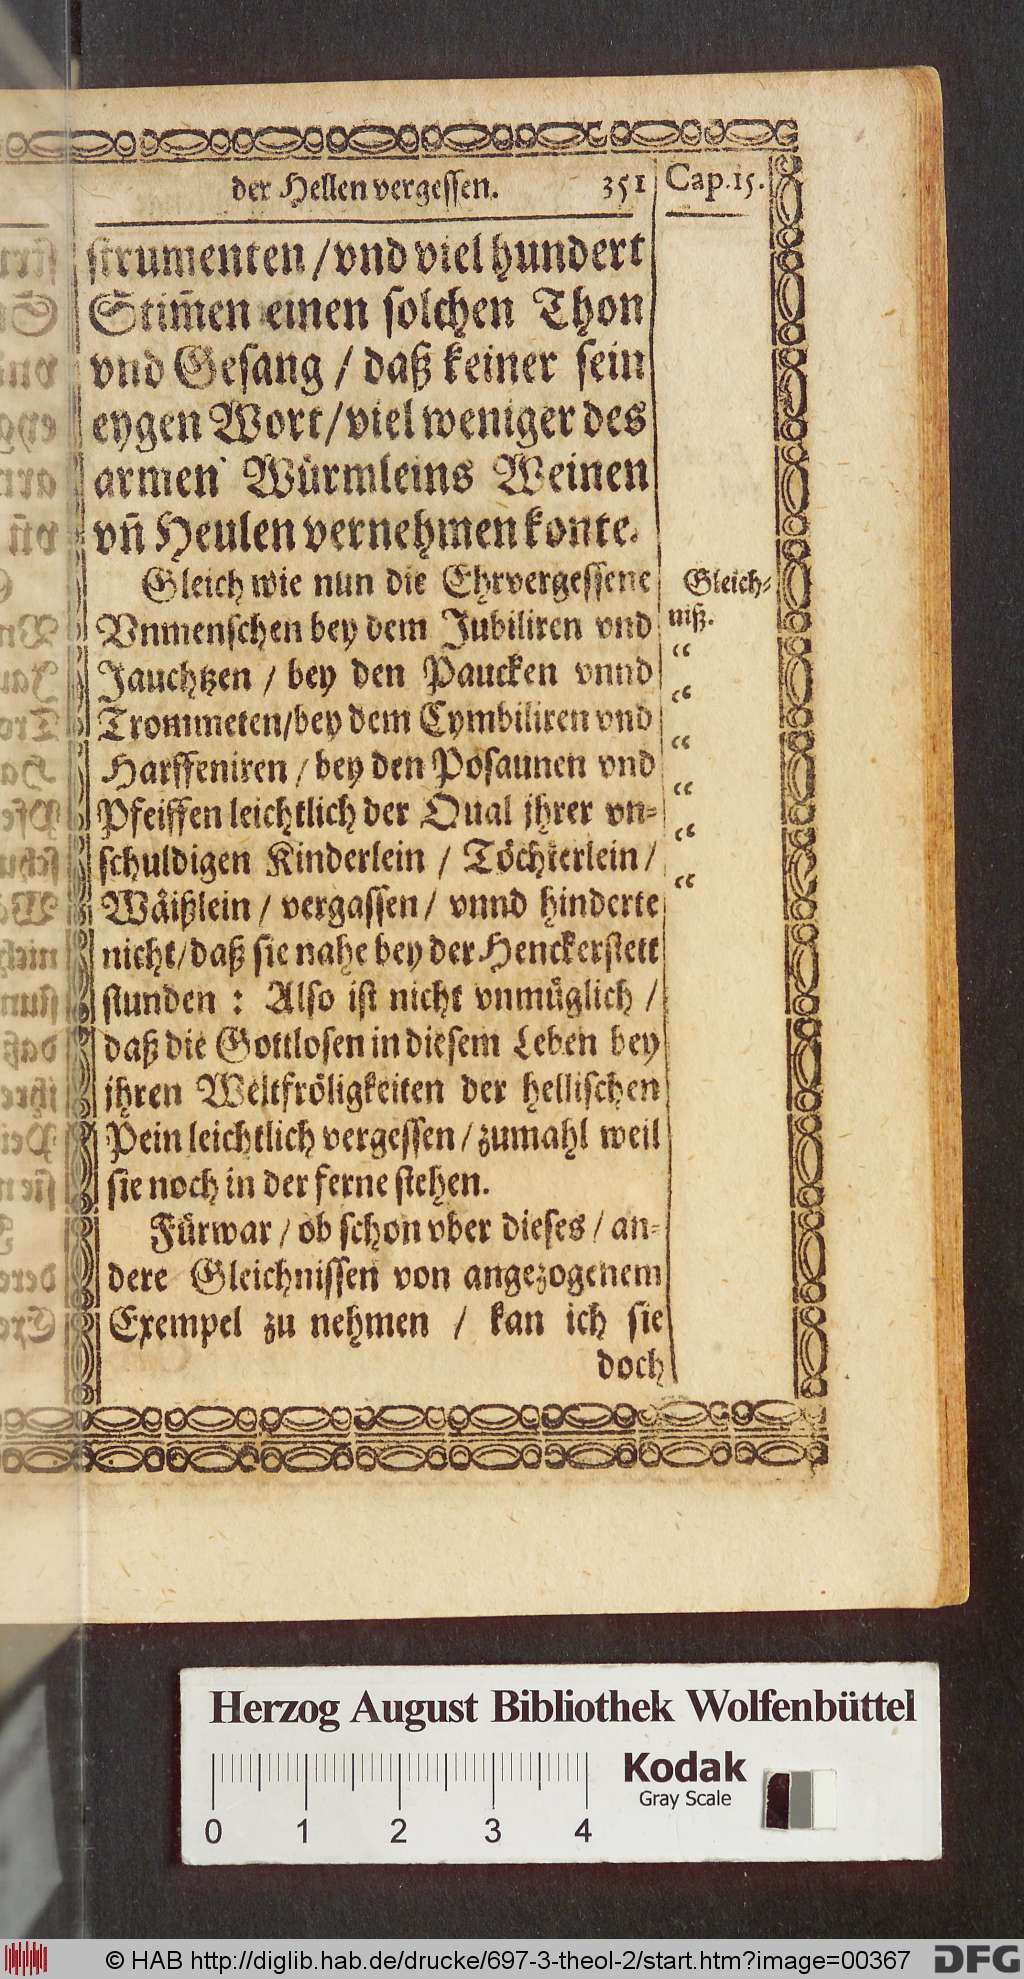 der Hellen vergessen. 351 Cap. 15.
strumenten / vnd viel hundert
Stim̃en einen solchen Thon
vnd Gesang / daß keiner sein
eygen Wort / viel weniger des
armen Würmleins Weinen
vñ Heulen vernehmen konte.
Gleich wie nun die Ehrvergessene
Vnmenschen bey dem Jubiliren vnd
Jauchtzen / bey den Paucken vnnd
Trommeten / bey dem Cymbiliren vnd
Harffeniren / bey den Posaunen vnd
Pfeiffen leichtlich der Qual jhrer vn-
schuldigen Kinderlein / Töchterlein /
Wäißlein / vergassen / vnnd hinderte
nicht / daß sie nahe bey der Henckerstett
stunden : Also ist nicht vnmüglich /
daß die Gottlosen in diesem Leben bey
jhren Weltfröligkeiten der hellischen
Pein leichtlich vergessen / zumahl weil
sie noch in der ferne stehen.
Fürwar / ob schon vber dieses / an-
dere Gleichnissen von angezogenem
Exempel zu nehmen / kan ich sie
doch
Gleich-
niß.
“
“
“
“
“
“
Herzog August Bibliothek Wolfenbüttel
Kodak
Gray Scale
0 1 2 3 4
© HAB http://diglib.hab.de/drucke/697-3-theol-2/start.htm?image=00367
DFG